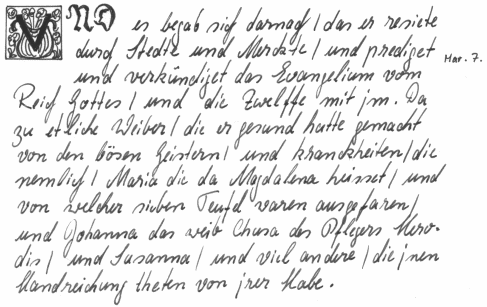 VND es begab sich darnach / das er reisete
durch Stedte und Merckte / und prediget
Mar. 7.
und verkündiget das Evangelium vom
Reich Gottes / und die Zwelffe mit jm. Da
zu etliche Weiber / die er gesund hatte gemacht
von den bösen Geistern / und kranckheiten / die
nemlich / Maria die da Magdalena heisset / und
von welcher sieben Teufel waren ausgefaren /
und Johanna das weib Chusa des Pflegers Hero-
dis / und Susanna / und viel andere / die jnen
Handreichung theten von jrer Habe.